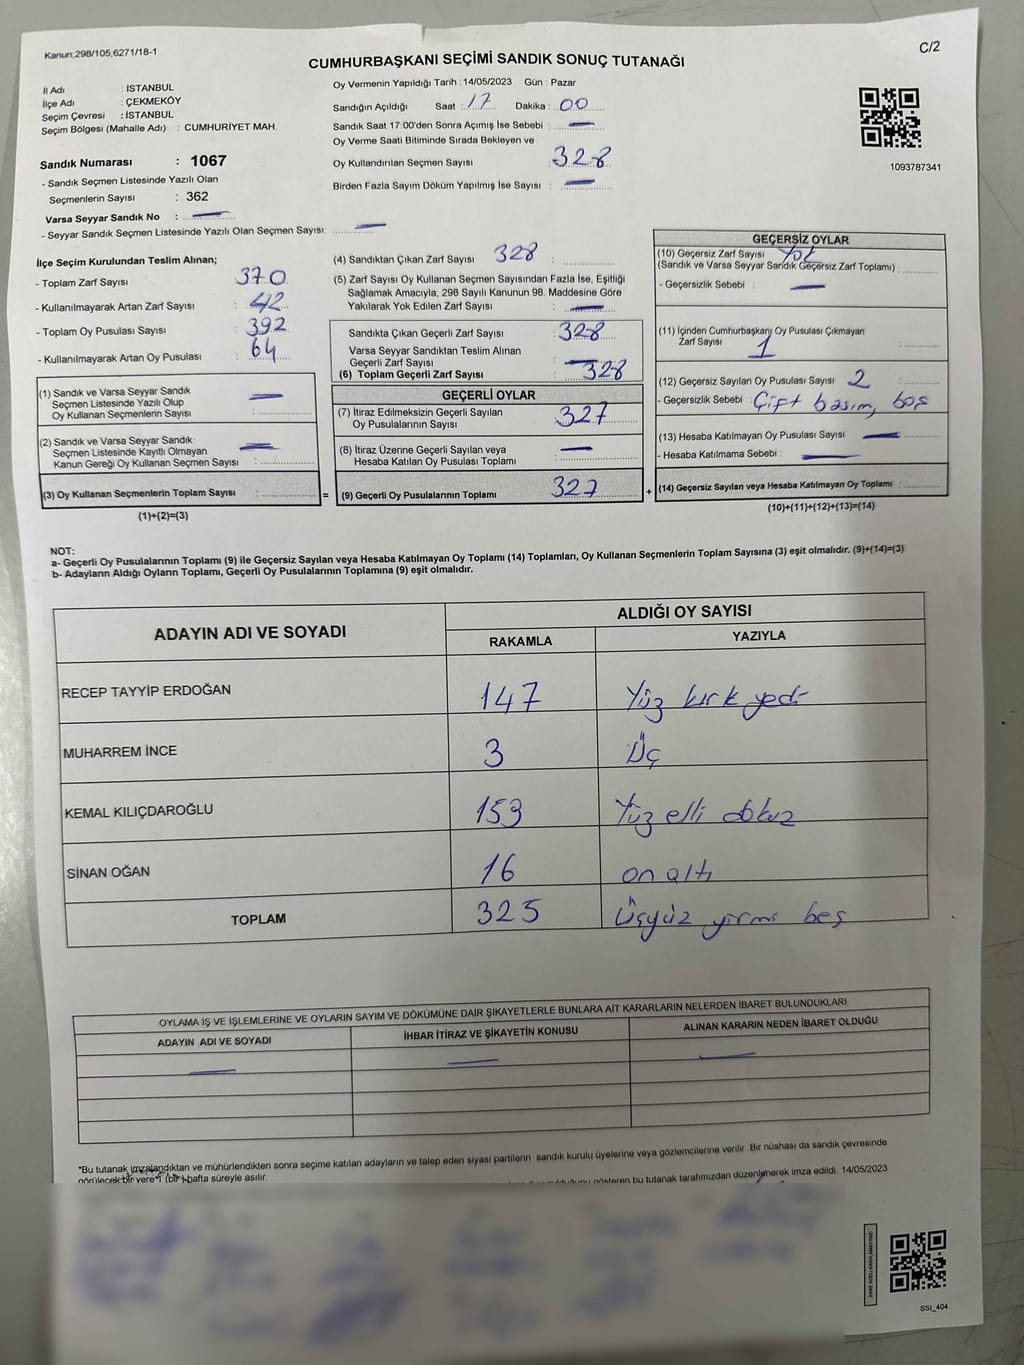 Kanun;298/105,6271/18-1
C/2
CUMHURBAŞKANI SEÇİMİ SANDIK SONUÇ TUTANAĞI
İl Adı : İSTANBUL
İlçe Adı : ÇEKMEKÖY
Seçim Çevresi : İSTANBUL
Seçim Bölgesi (Mahalle Adı) : CUMHURİYET MAH.
Sandık Numarası : 1067
- Sandık Seçmen Listesinde Yazılı Olan
Seçmenlerin Sayısı : 362
Varsa Seyyar Sandık No :
- Seyyar Sandık Seçmen Listesinde Yazılı Olan Seçmen Sayısı:
Oy Vermenin Yapıldığı Tarih : 14/05/2023 Gün : Pazar
Sandığın Açıldığı Saat : 17 Dakika : 00
Sandık Saat 17:00'den Sonra Açımış İse Sebebi :
Oy Verme Saati Bitiminde Sırada Bekleyen ve
Oy Kullandırılan Seçmen Sayısı : 328
Birden Fazla Sayım Döküm Yapılmış İse Sayısı :
1093787341
İlçe Seçim Kurulundan Teslim Alınan;
- Toplam Zarf Sayısı : 370
- Kullanılmayarak Artan Zarf Sayısı : 42
- Toplam Oy Pusulası Sayısı : 392
- Kullanılmayarak Artan Oy Pusulası : 64
(1) Sandık ve Varsa Seyyar Sandık
Seçmen Listesinde Yazılı Olup
Oy Kullanan Seçmenlerin Sayısı :
(2) Sandık ve Varsa Seyyar Sandık
Seçmen Listesinde Kayıtlı Olmayan
Kanun Gereği Oy Kullanan Seçmen Sayısı :
(3) Oy Kullanan Seçmenlerin Toplam Sayısı :
(1)+(2)=(3)
=
(4) Sandıktan Çıkan Zarf Sayısı 328 :
(5) Zarf Sayısı Oy Kullanan Seçmen Sayısından Fazla İse, Eşitliği
Sağlamak Amacıyla, 298 Sayılı Kanunun 98. Maddesine Göre
Yakılarak Yok Edilen Zarf Sayısı :
Sandıkta Çıkan Geçerli Zarf Sayısı : 328
Varsa Seyyar Sandıktan Teslim Alınan
Geçerli Zarf Sayısı :
(6) Toplam Geçerli Zarf Sayısı : 328
GEÇERLİ OYLAR
(7) İtiraz Edilmeksizin Geçerli Sayılan
Oy Pusulalarının Sayısı : 327
(8) İtiraz Üzerine Geçerli Sayılan veya
Hesaba Katılan Oy Pusulası Toplamı :
(9) Geçerli Oy Pusulalarının Toplamı : 327
+
GEÇERSİZ OYLAR
(10) Geçersiz Zarf Sayısı Yok
(Sandık ve Varsa Seyyar Sandık Geçersiz Zarf Toplamı) :
- Geçersizlik Sebebi :
(11) İçinden Cumhurbaşkanı Oy Pusulası Çıkmayan
Zarf Sayısı 1 :
(12) Geçersiz Sayılan Oy Pusulası Sayısı 2 :
- Geçersizlik Sebebi : Çift basım, boş
(13) Hesaba Katılmayan Oy Pusulası Sayısı
- Hesaba Katılmama Sebebi :
(14) Geçersiz Sayılan veya Hesaba Katılmayan Oy Toplamı :
(10)+(11)+(12)+(13)=(14)
NOT:
a- Geçerli Oy Pusulalarının Toplamı (9) ile Geçersiz Sayılan veya Hesaba Katılmayan Oy Toplamı (14) Toplamları, Oy Kullanan Seçmenlerin Toplam Sayısına (3) eşit olmalıdır. (9)+(14)=(3)
b- Adayların Aldığı Oyların Toplamı, Geçerli Oy Pusulalarının Toplamına (9) eşit olmalıdır.
ADAYIN ADI VE SOYADI
ALDIĞI OY SAYISI
RAKAMLA YAZIYLA
RECEP TAYYİP ERDOĞAN 147 Yüz kırk yedi
MUHARREM İNCE 3 Üç
KEMAL KILIÇDAROĞLU 159 Yüz elli dokuz
SİNAN OĞAN 16 on altı
TOPLAM 325 Üçyüz yirmi beş
OYLAMA İŞ VE İŞLEMLERİNE VE OYLARIN SAYIM VE DÖKÜMÜNE DAİR ŞİKAYETLERLE BUNLARA AİT KARARLARIN NELERDEN İBARET BULUNDUKLARI
ADAYIN ADI VE SOYADI İHBAR İTİRAZ VE ŞİKAYETİN KONUSU ALINAN KARARIN NEDEN İBARET OLDUĞU
*Bu tutanak imzalandıktan ve mühürlendikten sonra seçime katılan adayların ve talep eden siyasi partilerin sandık kurulu üyelerine veya gözlemcilerine verilir. Bir nüshası da sandık çevresinde
görülecek bir yere 1 (bir) hafta süreyle asılır.
gösteren bu tutanak tarafımızdan düzenlenerek imza edildi. 14/05/2023
SSI_404